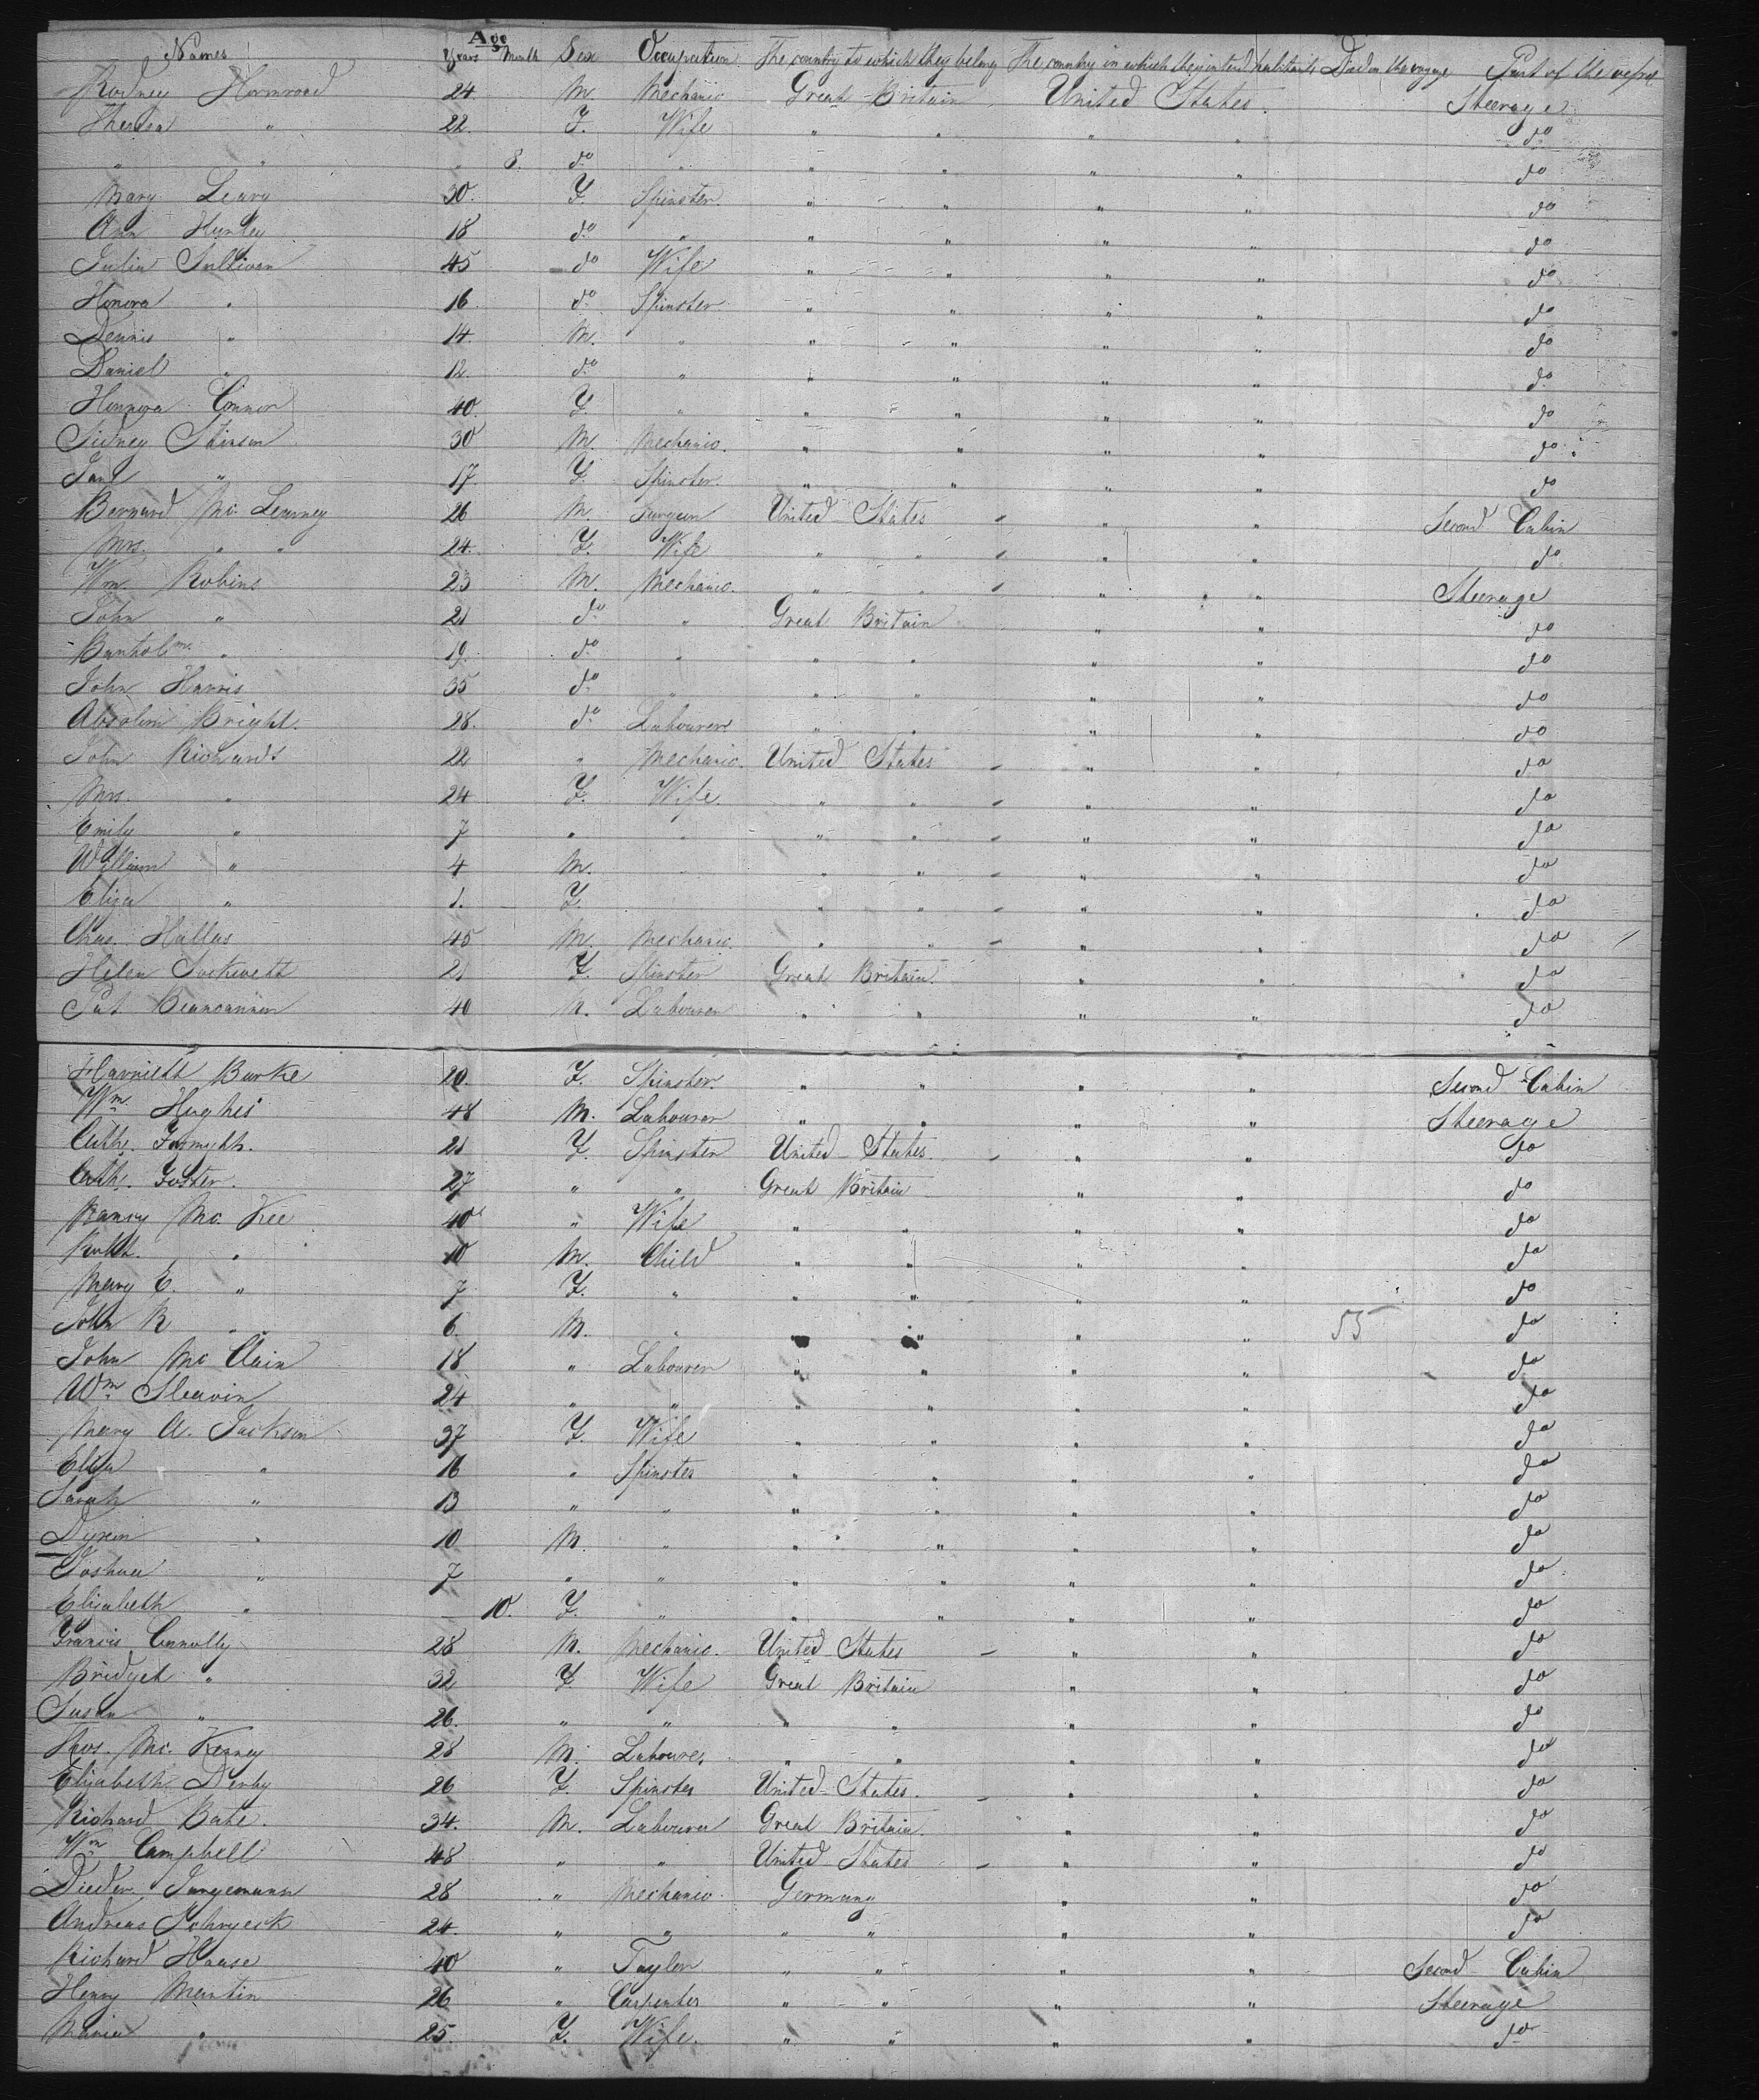 Age
Names Years Month Sex Occupation The country to which they belong The country in which they intend habitants Died on the voyage Part of the vessel
Rodney Hormrood 24 M. Mechanic Great Britain United States. Steerage
Theresa " 22. F. Wife " " " " do
" " " 8. do " " " " " do
Mary Leary 30. F. Spinster " " " " do
Ann Hurley 18 do " " " " " do
Julia Sullivan 45 do Wife " " " " do
Honora " 16 do Spinster " " " " do
Dennis " 14 M. " " " " " do
Daniel " 12. do " " " " " do
Honnora Connor 40. F. " " " " " do
Sidney Stinson 30 M. Mechanic. " " " " do
Jane " 17. F. Spinster. " " " " do
Bernard Mc. Learney 26 M Surgeon United States " " Second Cabin
Mrs. " " 24. F. Wife " " " " do
Wm Robins 23 M. Mechanic. " " " " Steerage
John " 21 do " Great Britain " " do
Barthol m. " 19. do " " " " " do
John Harris 35 do " " " " " do
Absolum Bright. 28. do Labourer " " " " do
John Richards 22 " Mechanic. United States " " do
Mrs. " 24 F. Wife. " " " " do
Emily " 7 " " " " " " do
William " 4 M. " " " " do
Eliza " 1. F. " " " " do
Chas. Hallas 45 M. Mechanic. " " " " do
Helen 21 F. Spinster Great Britain. " " do
Pat 40 M. Labourer " " " " do
Harrieth Burke 20. F. Spinster. " " " " Second Cabin
Wm. Hughes 48 M. Labourer " " " " Steerage
Cathe. Forsmyth. 21 F. Spinster United States. " " do
Cath. Foster. 27 " " Great Britain " " do
Nancy Mc. Kee 40 " Wife " " " " do
Robt. " 10 M. Child " " " " do
Mary E. " 7 F. " " " " " do
John R " " 6. M. " " " " " 55 do
John Mc Clain 18 " Labourer " " " " do
Wm Sleavin 24 " " " " " " do
Mary A. Jackson 37 F. Wife " " " " do
Eliza " 16 " Spinster " " " " do
Sarah " 13 " " " " " " do
" 10 M. " " " " " do
Joshua " 7 " " " " " " do
Elisabeth " 10. F. " " " " " do
Francis Connolly 28 M. Mechanic. United States " " do
Bridget " 32 F. Wife Great Britain " " do
Susan " 26. " " " " " " do
Thos. Mc. Kenney 28 M. Laboure. " " " " do
Elizabeth Derby 26 F. Spinster United States. " " do
Richard Bate. 34. M. Labourer Great Britain. " " do
Wm Campbell 48 " " United States " " do
Dieder. Jungemann 28 " Mechanic. Germany " " do
Andreas 24. " " " " " " do
Richard Haase 40 " Taylor " " " " Second Cabin
Henry Martin 26 " Carpenter " " " " Steerage
Maria " 25. F. Wife. " " " " do